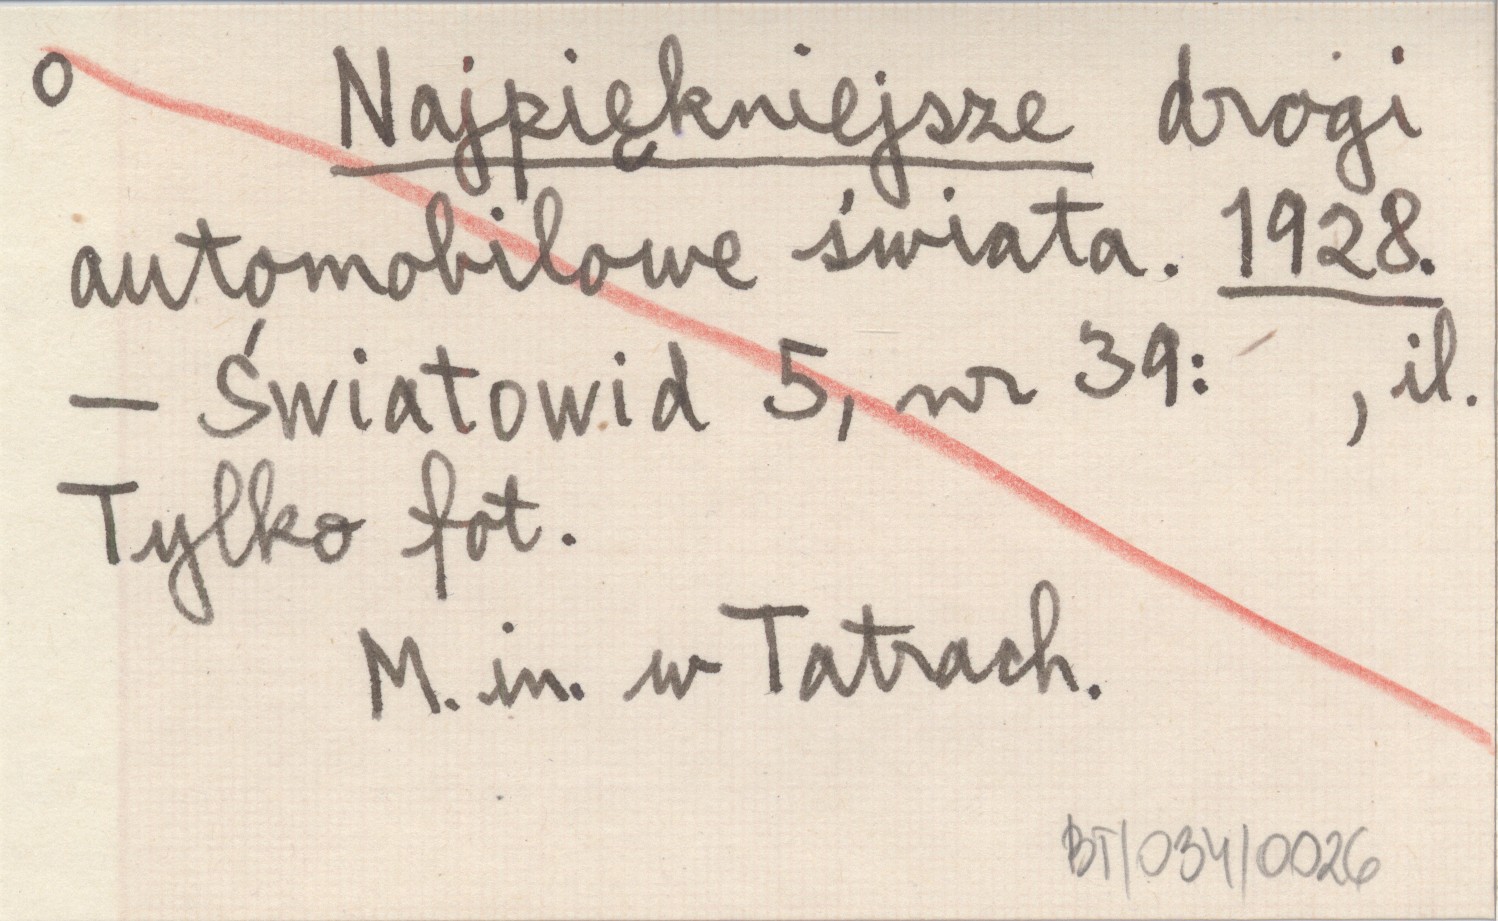 o Najpiękniejsze drogi
automobilowe świata. 1928.
— Światowid 5, nr 39: , il.
Tylko fot.
M. in. w Tatrach.
BT/034/0026